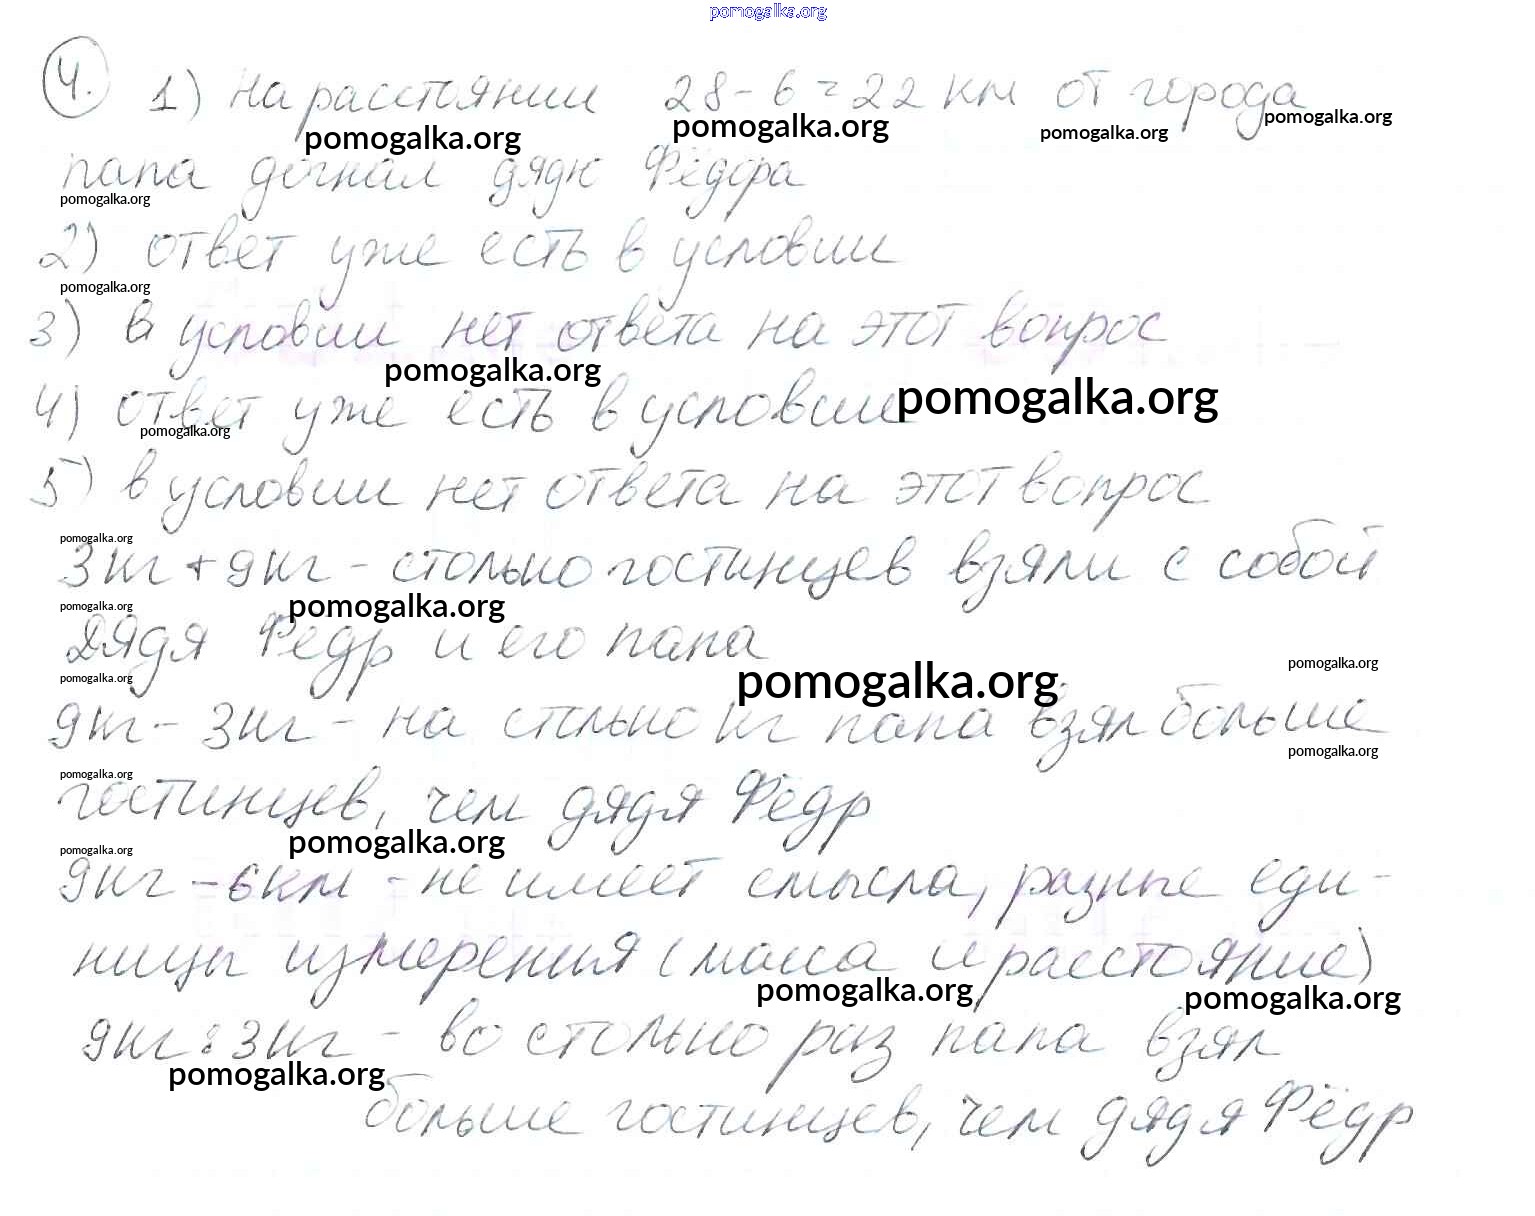 pomogalka.org
4. 1) На расстоянии 28-6=22 км от города
pomogalka.org pomogalka.org pomogalka.org pomogalka.org
папа догнал дядю Фёдора
pomogalka.org
2) ответ уже есть в условии
pomogalka.org
3) в условии нет ответа на этот вопрос
pomogalka.org
4) ответ уже есть в условии
pomogalka.org
pomogalka.org
5) в условии нет ответа на этот вопрос
pomogalka.org
3кг + 9кг - столько гостинцев взяли с собой
pomogalka.org pomogalka.org
Дядя Федр и его папа
pomogalka.org pomogalka.org pomogalka.org
9кг - 3кг - на столько кг папа взял больше
pomogalka.org
pomogalka.org
гостинцев, чем дядя Фёдр
pomogalka.org pomogalka.org
9кг - 6км - не имеет смысла, разные еди-
ницы измерения (масса и расстояние)
pomogalka.org pomogalka.org
9кг : 3кг - во столько раз папа взял
pomogalka.org
больше гостинцев, чем дядя Фёдр